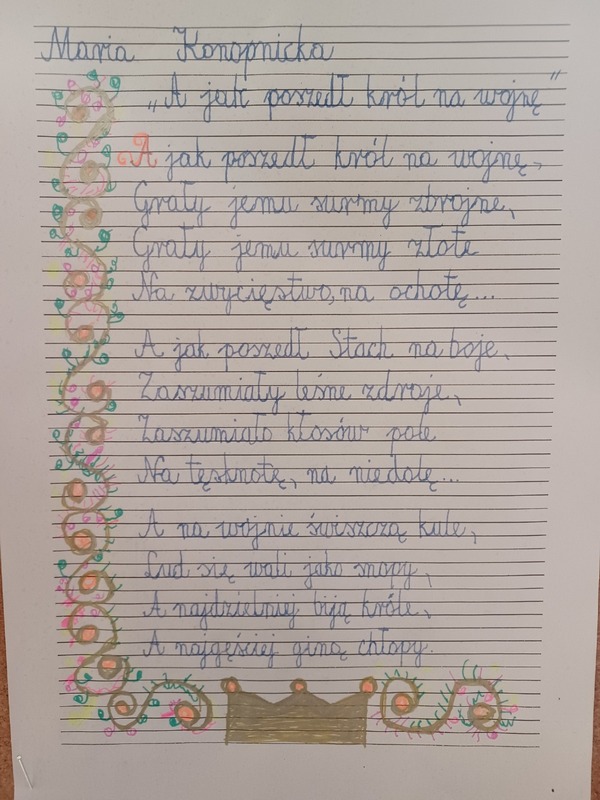 Maria Konopnicka
„A jak poszedł król na wojnę”
A jak poszedł król na wojnę,
Grały jemu surmy zbrojne,
Grały jemu surmy złote
Na zwycięstwo, na ochotę...
A jak poszedł Stach na boje,
Zaszumiały leśne zdroje,
Zaszumiało kłosów pole
Na tęsknotę, na niedolę...
A na wojnie świszczą kule,
Lud się wali jako snopy,
A najdzielniej biją króle,
A najgęściej giną chłopy.